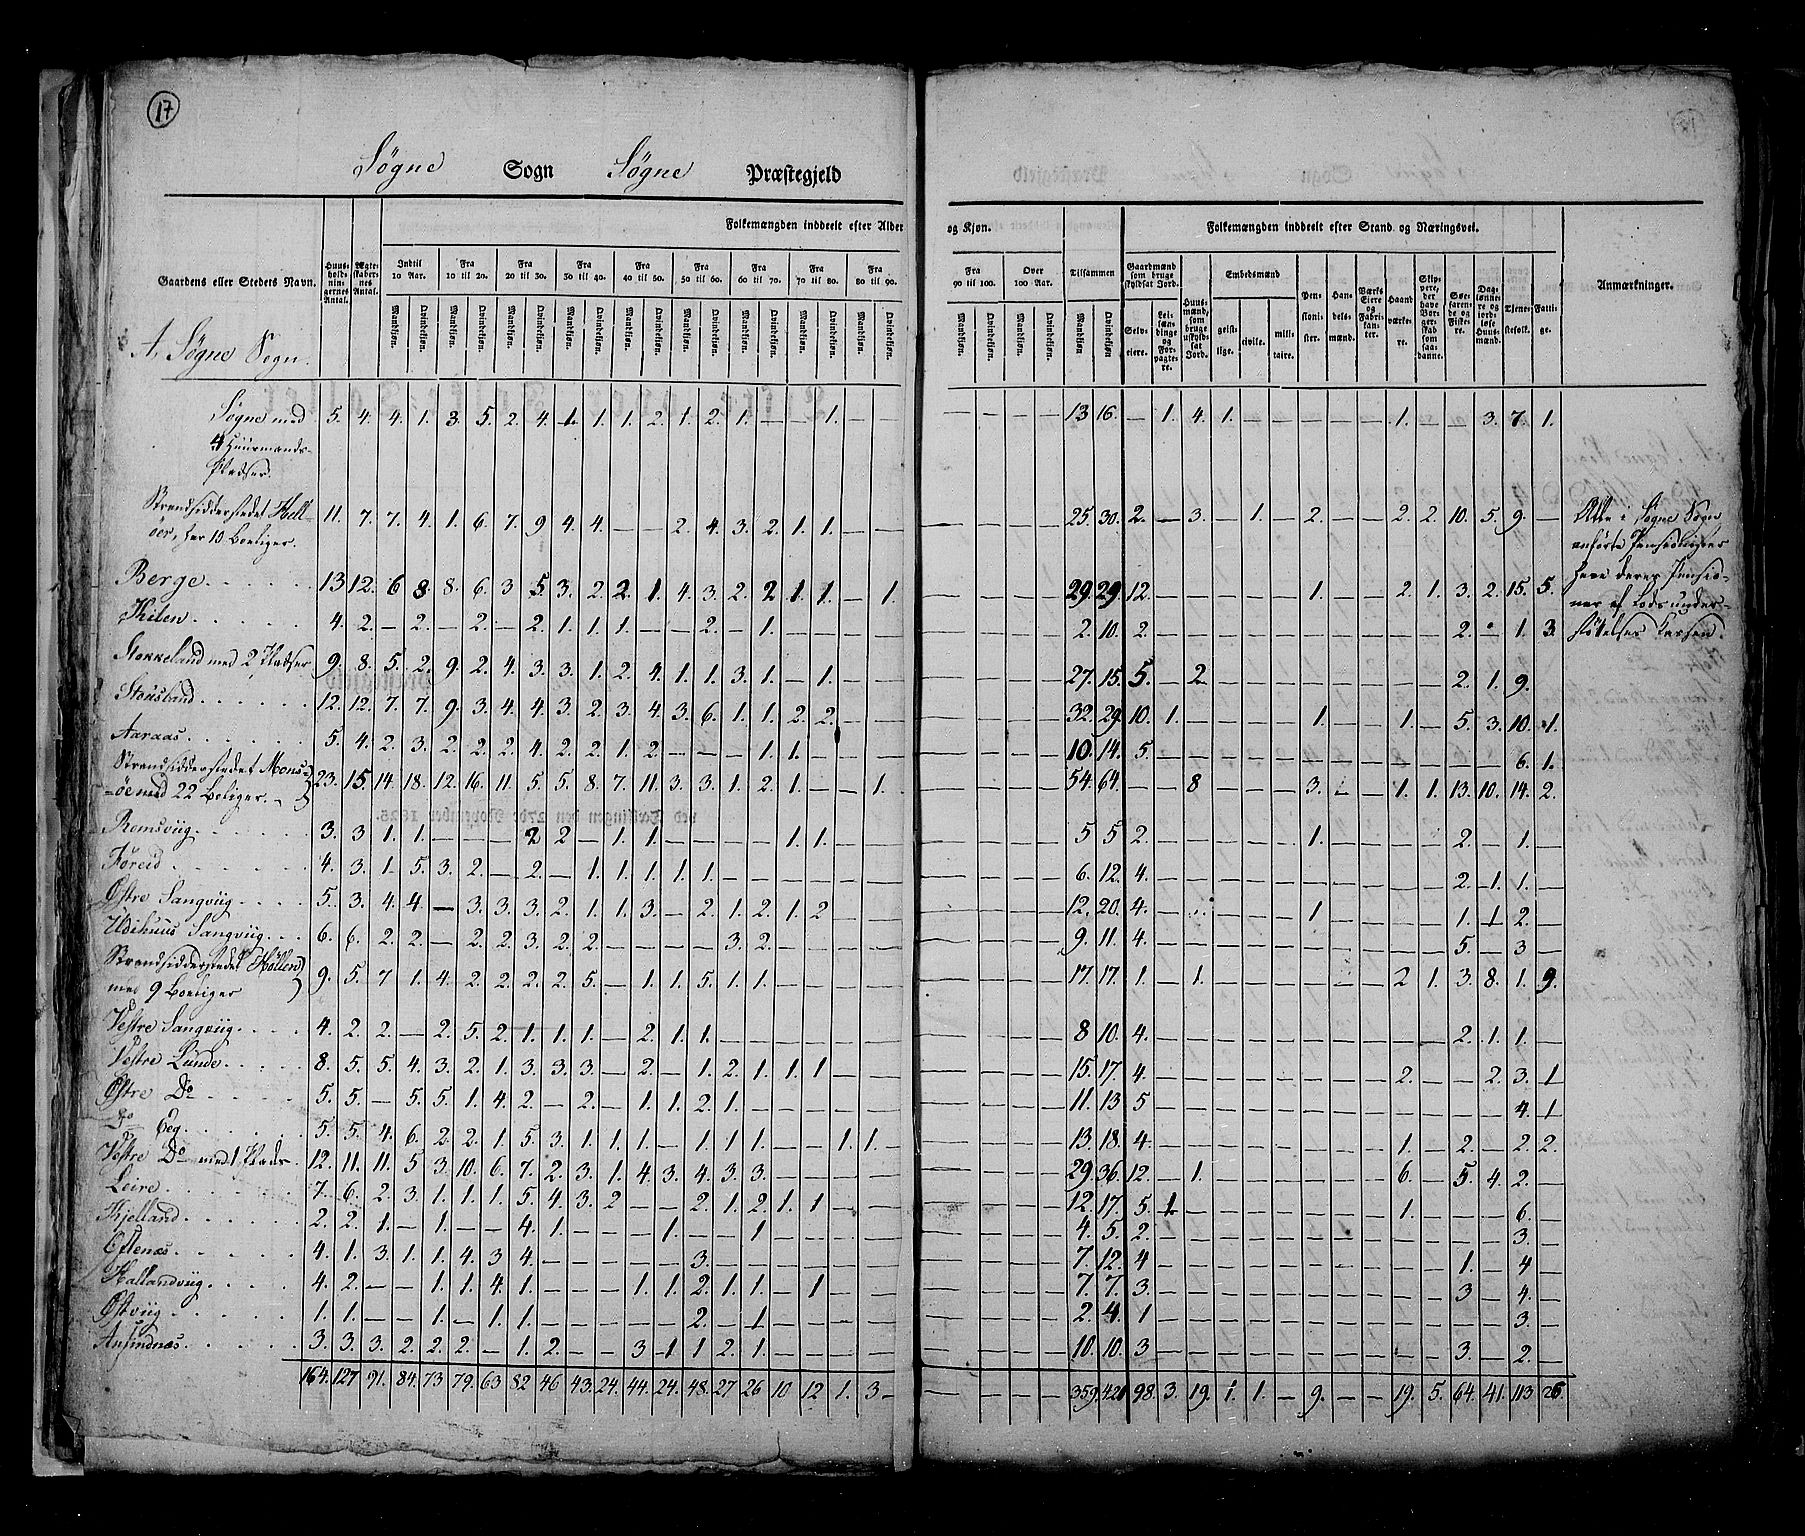 17
Søgne Sogn Søgne Præstegjeld
Gaardens eller Stedets Navn.
Huus-holdningernes Antal.
Ægteskabernes Antal.
Folkemængden inddeelt efter Alder og Kjøn.
Indtil 10 Aar. Fra 10 til 20. Fra 20 til 30. Fra 30 til 40. Fra 40 til 50. Fra 50 til 60. Fra 60 til 70. Fra 70 til 80. Fra 80 til 90. Fra 90 til 100. Over 100 Aar. Tilsammen
Mandkjøn. Qvindekjøn.
Folkemængden inddeelt efter Stand og Næringsvei.
Gaardmænd som bruge skyldsat Jord.
Selveiere.
Leilændinge og Forpagtere.
Huusmænd, som bruge uskyldsat Jord.
Embedsmænd
geistlige. civile. militaire.
Pensionister.
Handelsmænd.
Værks Eiere og Fabrikanter.
Haandværkere.
Skippere, der have Borgerskab som saadanne.
Søefarende og Fiskere.
Daglønnere og jordløse Huusmænd.
Tjenestefolk.
Fattige.
Anmærkninger.
A, Søgne Sogn.
Søgne med 5. 4. 4. 1. 3. 5. 2. 4. 1. 1. 1. 2. 1. 2. 1. — — 1. — — — — — — 13 16. — 1. 4. 1. — — — — — 1. — — 3. 7. 1.
4 Huusmands-
Pladser.
Strandsidderstedet Hell- 11. 7. 7. 4. 1. 6. 7. 9 4. 4. — — 2. 4. 3. 2. 1. 1. — — — — — — 25. 30. 2. — 3. — 1. — 2. — — 2. 2. 10. 5. 9. — Alle i Søgne Sogn
øer, har 10 Boeliger. anførte Pensionister
Berge 13 12. 6 8. 8. 6. 3 5. 3. 2. 2. 1. 4. 3. 2. 2. 1. 1. — 1. — — — — 29. 29. 12. — — — — — 1. — — 2. 1. 3. 2. 15. 5. have deres Pensio-
Kilen 4. 2. — 2. — 2. — 2. 1. 1. 1. — — 2. — 1. — — — — — — — — 2. 10. 2. — — — — — — — — — — 2. — 1. 3. ner af Lods under-
støttelses Kassen.
Stokkeland med 2 Pladser 9. 8. 5. 2. 9. 2. 4. 3. 3. 1. 2. 4. 1. 1. 3. 1. — 1. — — — — — — 27. 15. 5. — 2 — — — — — — — — 2. 1. 9. —
Stousland 12. 12. 7. 7. 9. 3. 4. 4. 3. 2. 3. 4. 3. 6. 1. 1. 2. 2. — — — — — — 32. 29. 10. 1. — — — — 1. — — 1. — 5. 3. 10. 1.
Aaraas 5. 4. 2. 3. 2. 2. 2. 4. 2. 2. 1. 2. — — — 1. 1. — — — — — — — 10. 14. 5. — — — — — — — — — — — — 6. 1.
Strandsidderstedet Mons-
øe med 22 Boliger 23. 15. 14. 18. 12. 16. 11. 5. 5. 8. 7. 11. 3. 3. 1. 2. 1. — — 1. — — — — 54. 64. — — 8 — — — 3. — — 1. 1. 13. 10. 14. 2.
Romsviig 3. 3 1. 1. — — — 2 2 — 1. 1. — — — — 1. 1. — — — — — — 5 5 2. — — — — — 1. — — — — 2. — 1. —
Føreid 4. 3. 1. 5. 3. 2. — 2. — 1. 1. 1. 1. 1. — — — — — — — — — — 6. 12. 4. — — — — — — — — — — 2. 1. 1. —
Østre Langviig 5. 3. 4. 4. — 3. 3. 3. 2. 1. 1. 3. — 2. 1. 2. 1. 2 — — — — — — 12. 20. 4. — — — — — 1 — — — — 1. 1 2. —
Udehuus Langviig 6. 6. 2. 2. — 2. 2. 3. 2. 2. — — — — 3. 2. — — — — — — — — 9. 11. 4. — — — — — — — — — — 5. — 3 —
Strandsidderstedet Høllen
med 9 Boeliger 9. 5. 7 1. 4. 2. 2. 2. 2. 5. — 1. 1. 5. 1. 1. — — — — — — — — 17. 17. 1. — 1. — — — — — — 2 1. 3. 8. 1. 9.
Vestre Langviig 4. 2. 2. — 2. 5. 2. 1. 1. 1. — 2. 1. 1. — — — — — — — — — — 8 10. 4. — — — — — — — — — — 2. 1. 1. —
Vestre Lunde 8. 5. 5. 4. 3. 2. 1. 3. 3. 3. — 2. — 1. 2. 1. 1. 1. — — — — — — 15. 17. 4. — — — — — — — — 2. — — 2. 3. 1
Østre Do 5. 5. — 5. 5. 1. 4. 2. — 2. — 1. 1. 2. 1. — — — — — — — — — 11. 13. 5 — — — — — — — — — — — — 4. 1
Do Eeg 5. 5. 4. 6. 2. 2. 1. 5. 3. 1. 1. 1. — 1. 1. 1. — — 1. 1. — — — — 13. 18. 4. — — — — — — — — 1. — 2. — 2. 2.
Vestre Do med 1 Plads 12. 11. 11. 5. 3. 10. 6. 7. 2. 3. 1. 4. 3. 4. 3. 3. — — — — — — — — 29. 36. 12. — 1. — — — — — — 6. — 5. 4. 2. —
Leire 7. 6. 2. 3. 1. 1. 1. 5. 4. 3. 2 — — 2. 1. 2. 1. 1 — — — — — — 12. 17. 5. 1. — — — — — — — 1. — — — 6. —
Kjelland 2. 2. 1. — 1. — — 4. 1. — — — 1. — — 1. — — — — — — — — 4. 5. 2. — — — — — — — — — — — — 3. —
Eftenæs 4. 1. 3. 1. 1. 4. 3 4. — — — — — 3. — — — — — — — — — — 7. 12. 4 — — — — — — — — — — 1. — 4 —
Hallandviig 4. 2. — — 1. 1. 4. 1. — — — 1. 1. 2. 1. 1. — 1 — — — — — — 7. 7. 3. — — — — — — — — — — 3 — 4. —
Østviig 1. 1. — — 1. — 1. 1. — — — — — 2. — 1. — — — — — — — — 2. 4. 1 — — — — — — — — — — — — 3. —
Amfindnæs 3. 3. 3. 2. 2. 2. — 1. 2. — — 3 1 1 2. 1. — — — — — — — — 10. 10. 3 — — — — — — — — — — 3. — 2. —
164. 127 91. 84. 73 79. 63 82 46 43. 24. 44. 24. 48. 27 26 10 12 1. 3 — — — — 359. 421 98. 3. 19. 1. 1. — 9. — — 19. 5. 64. 41. 113 26.